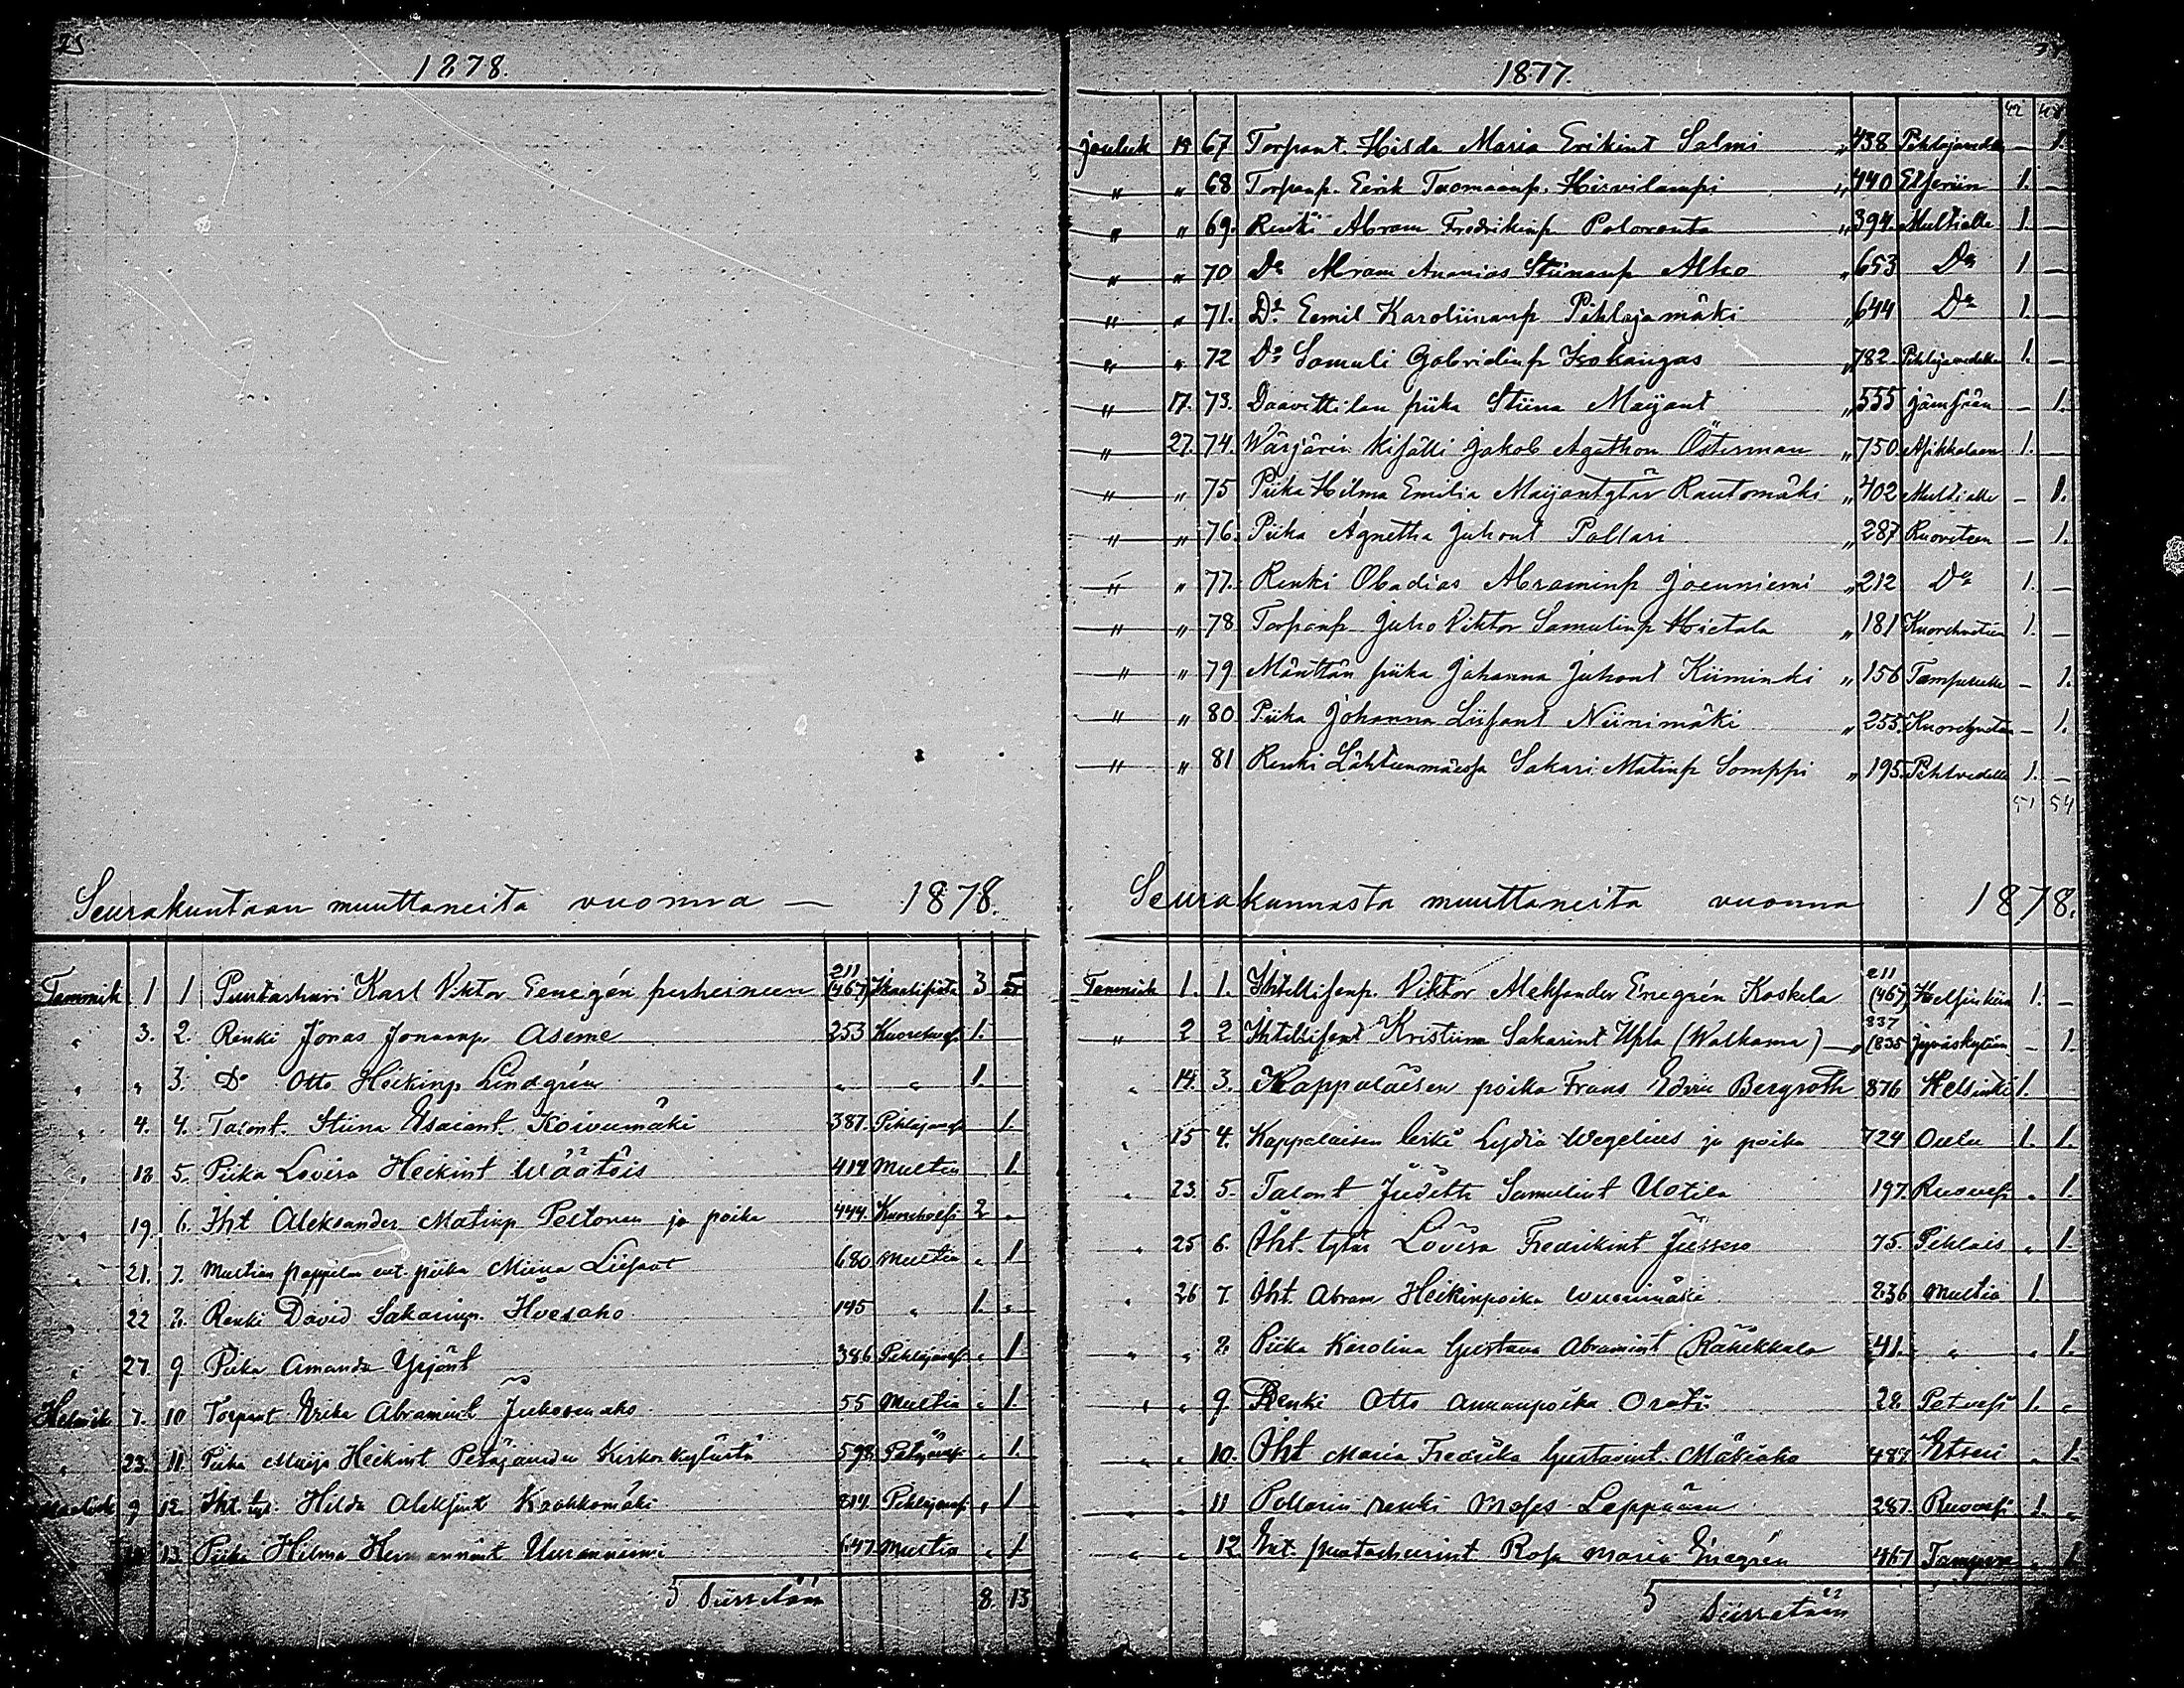 25
1878.
Seurakuntaan muuttaneita vuonna — 1878.
Tammik 1 1 Puutarhuri Karl Viktor Enegrén perheineen 211 (467) 3 5
" 3. 2. Renki Jonas Jonaanp. Aseme 253 Kuorehvesi 1.
" " 3. Do Otto Heikinp Lindgrén " " 1.
" 4. 4. Talont. Stiina Esaiant. Koivumäki 387. Pihlajavesi 1.
" 18 5. Piika Lovisa Heikint Wäätäis 414 Multia 1.
" 19. 6. Iht Aleksander Matinp Peltonen ja poika 444. Kuorehvesi 2 "
" 21. 7. Multian pappilan ent. piika Miina Liisant 680 Multia " 1
" 22 8. Renki David Sakarinp. 145 " 1. "
" 27. 9 Piika Amanda Yrjönt 386 Pihlajavesi " 1
Helmik 7. 10 Torpant Erika Abramint Juhosenaho 55 Multia " 1.
" 23. 11. Piika Maija Heikint Petäjäveden Kirkonkylästä 598 Petäjävesi " 1.
Maalisk 9 12. Iht. tyt. Hilda Aleksint 814. Pihlajavesi " 1
13. Piika Hilma Hermannint Uuranniemi 647 Multia " 1
5 Siirretään 8 13
1877.
42 48
jouluk 15 67 Torpant. Hilda Maria Erikint Salmi " 438 Pihlajavedelle — 1.
" " 68 Torpanp. Eerik Tuomaanp. Hirvilampi " 440 Etseriin 1. —
" " 69. Renki Abram Fredrikinp Poloranta " 394. Multialle 1. —
" " 70 Do Abram Ananias Stiinanp Alho " 653 Do 1 —
" " 71. Do Eemil Karoliinanp Pihlajamäki " 644 Do 1. —
" " 72 Do Samuli Gabrielinp Isokangas " 782 Pihlajavedelle 1. —
" 17. 73. Daavittilan piika Stiina Maijant " 555 Jämsään — 1.
" 27. 74. Wärjärin kisälli Jakob Agathon Österman " 750 Asikkalaan 1.
" " 75 Piika Hilma Emilia Maijantytär Rautomäki " 402 Multialle — 1.
" " 76. Piika Agnetha Juhont Pollari " 287 Ruoveteen — 1.
" " 77. Renki Obadias Abraminp Joenniemi " 212 Do 1. —
" " 78 Torpanp Juho Viktor Samulinp Hietala " 181 Kuorehveteen 1. —
" " 79 Mänttän piika Johanna Juhont Kiiminki " 156 Tampereelle — 1.
" " 80 Piika Johanna Liisant Niinimäki " 255. Kuorehveteen — 1.
" " 81 Renki Lähteenmäessä Sakari Matinp Somppi " 195. Pihlvedelle 1. —
51 54
Seurakunnasta muuttaneita vuonna 1878.
Tammik 1. 1. Ihtellisenp. Viktor Aleksander Enegrén Koskela 211 (467) Helsinkiin 1. —
" 2 2 Ihtellisent Kristiina Sakarint Ahla (Walkama) — " 837 (835 Jyväskylään — 1.
" 14. 3. Kappalaisen poika Frans Edvin Bergroth 876 Helsinki 1.
" 15 4. Kappalaisen leski Lydia Wegelius ja poika 724 Oulu 1. 1.
" 23. 5. Talont Juditta Samulint Uotila 197. Ruovesi " 1.
" 25 6. Iht. tytär Lovisa Fredrikint 75. " 1.
" 26 7. Iht. Abram Heikinpoika Wuorimäki 236 Multia 1.
" " 8. Piika Karolina Gustava Abramint Rähikkala 41. " " 1.
" " 9. Renki Otto Annanpoika 28. Petvesi 1. "
" " 10. Iht Maria Fredrika Gustavint Mäkiaho Etseri " 1.
" " 11 Pollarin renki Moses Leppänen 287. Ruovesi 1. "
" " 12 Ent. puutarhurint Rosa Maria Enegrén 467 Tampere " 1
5 Siirretään